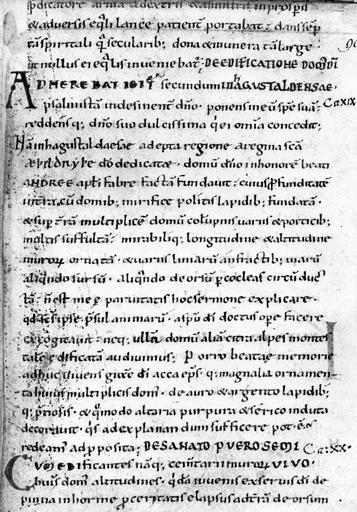 p̄dicatore arma adextris &asinistris inprosp̄is
&aduersis eq̄li lance patient̄ portabat· dans sep̄
tā spiritali q̄ secularib; dona &munera tā large·
ut nullus ei eq̄lis inueniebat̄· DE EDIFICATIONE DOM̄ DĪ
ADHEREBAT IGIT̄ secundum INHAGUSTALDENSAE·
psalmistā indesinent̄ dn̄o· ponens in eū spē suā· C̄ XXII
reddens q; dn̄o suo dulcissima qui ei omnia concedit;
Nā inhagustaldaesae adepta regione aregina scā
AEÞILDRYÞE dō dedicatae· domū dn̄i inhonorē beati
ANDREE apl̄i fabre factā fundauit· cuius p̄funditatē
interra cū domib; mirifice politis lapidib; fundatā·
& sup̄ t̄rā multiplicē domū columpnis uariis &porticib;
multis suffultā· mirabiliq; longitudine &altitudine
muroꝝ ornatā· &uariis linearū anfractib; uiarū
aliq̄ndo sursū· aliq̄ndo deorsū p̄ cocleas circū duc
tā· n̄ est meę paruitatis hoc sermone explicare·
qd̄ sc̄s ipse p̄sul animarū· asp̄u dī doctus ope facere
excogitauit· neq; ullū domū aliā citra alpes montes
talē ędificatā audiuimus; Porro beatae memorię
adhuc uiuens gr̄a dī acca ep̄s· q; magnalia ornamen
ta huius multiplicis dom̄· de auro &argento lapidib;
q; p̄tiosis· & q̄modo altaria purpura &serico induta
decorauit· q̄s ad explanandum sufficere pot·ē
redeam̄ ad p̄posita; DE SANATO PUERO SEMI
CUM EDIFICANTES nāq; cemītarii muroꝝ UIUO·
huius dom̄ altitudines· q̄dā iuuenis ex seruis dī de
pinna inhorme p̄ceritatis elapsus ad t̄rā deorsum